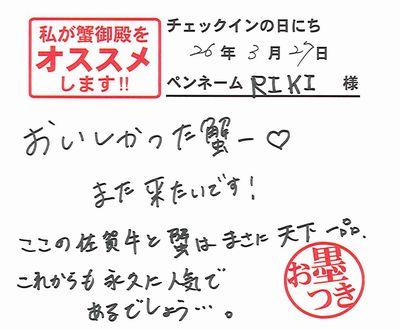 私が蟹御殿を
オススメ
します!!
チェックインの日にち
26年3月27日
ペンネーム RIKI 様
おいしかった蟹ー♡
また来たいです!
ここの佐賀牛と蟹はまさに天下一品.
これからも永久に人気で
あるでしょう…。
お墨つき